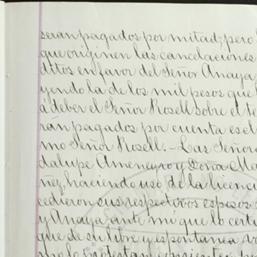 seran pagados por mitad; pero
que originen las cancelaciones
ditos en favor del Señor Anaya,
yendo la de los mil pesos que
a deber el Señor Rosell sobre el te
rán pagados por cuenta esclu
mo Señor Rosell.- Las Señora
dalupe Ameneyro y Doña Ma
ñez, haciendo uso de la licencia
cedieron sus respectivos esposos
y Anaya, ante mí que lo certi
que de su libre y espontanea vo